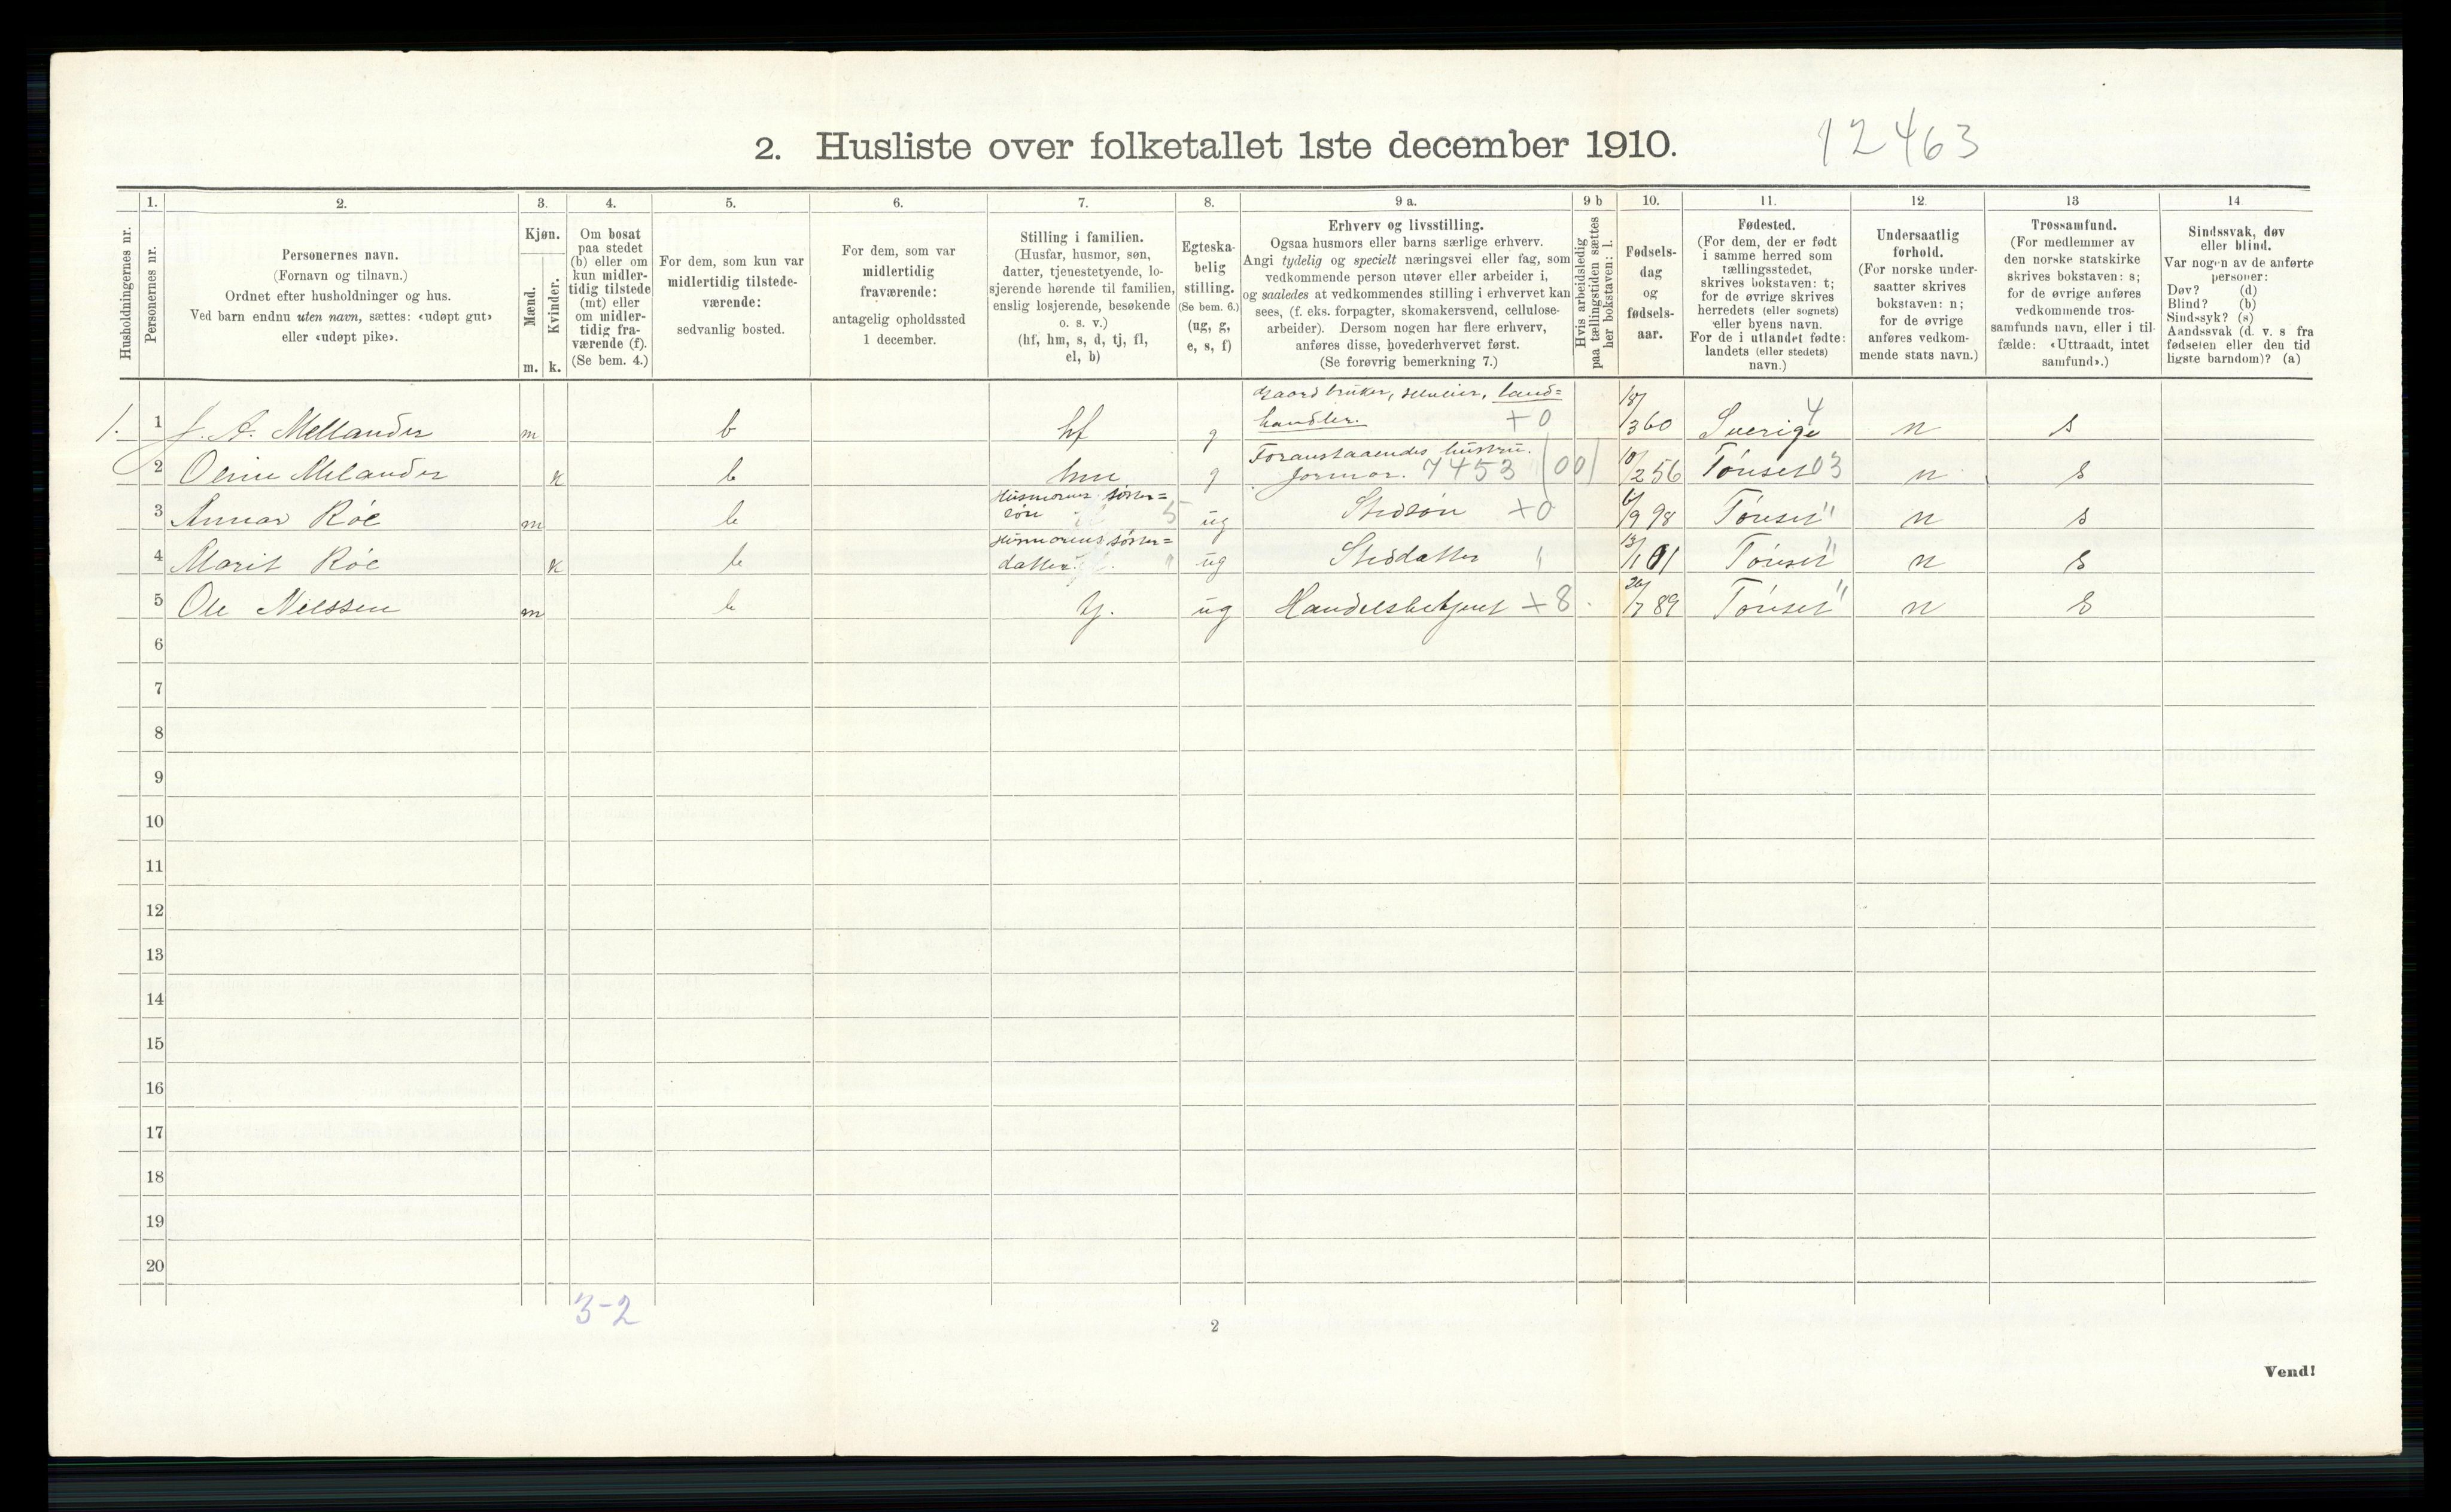 2. Husliste over folketallet 1ste december 1910.
12463
1. 2. 3. 4. 5. 6. 7. 8. 9 a. 9 b 10. 11. 12. 13 14
Husholdningernes nr.
Personernes nr.
Personernes navn.
(Fornavn og tilnavn.)
Ordnet efter husholdninger og hus.
Ved barn endnu uten navn, sættes: «udøpt gut»
eller «udøpt pike».
Kjøn.
Mænd.
Kvinder.
m. k.
Om bosat
paa stedet
(b) eller om
kun midler-
tidig tilstede
(mt) eller
om midler-
tidig fra-
værende (f).
(Se bem. 4.)
For dem, som kun var
midlertidig tilstede-
værende:
sedvanlig bosted.
For dem, som var
midlertidig
fraværende:
antagelig opholdssted
1 december.
Stilling i familien.
(Husfar, husmor, søn,
datter, tjenestetyende, lo-
sjerende hørende til familien,
enslig losjerende, besøkende
o. s. v.)
(hf, hm, s, d, tj, fl,
el, b)
Egteska-
belig
stilling.
(Se bem. 6.)
(ug, g,
e, s, f)
Erhverv og livsstilling.
Ogsaa husmors eller barns særlige erhverv.
Angi tydelig og specielt næringsvei eller fag, som
vedkommende person utøver eller arbeider i,
og saaledes at vedkommendes stilling i erhvervet kan
sees, (f. eks. forpagter, skomakersvend, cellulose-
arbeider). Dersom nogen har flere erhverv,
anføres disse, hovederhvervet først.
(Se forøvrig bemerkning 7.)
Hvis arbeidsledig
paa tællingstiden sættes
her bokstaven: l.
Fødsels-
dag
og
fødsels-
aar.
Fødested.
(For dem, der er født
i samme herred som
tællingsstedet,
skrives bokstaven: t;
for de øvrige skrives
herredets (eller sognets)
eller byens navn.
For de i utlandet fødte:
landets (eller stedets)
navn.)
Undersaatlig
forhold.
(For norske under-
saatter skrives
bokstaven: n;
for de øvrige
anføres vedkom-
mende stats navn.)
Trossamfund.
(For medlemmer av
den norske statskirke
skrives bokstaven: s;
for de øvrige anføres
vedkommende tros-
samfunds navn, eller i til-
fælde: «Uttraadt, intet
samfund».)
Sindssvak, døv
eller blind.
Var nogen av de anførte
personer:
Døv? (d)
Blind? (b)
Sindssyk? (s)
Aandssvak (d. v. s fra
fødselen eller den tid
ligste barndom)? (a)
Gaardbruker, selveier, land=
1. 1 J. A. Mellander m b hf g handler. +0 18/3 60 Sverige 4 n s
Foranstaaendes hustru.
2 Oline Melander k b hm g Jormor. 7453 (00) 10/2 56 Tønset 03 n s
Husmorens søster=
3 Annar Röe m b søn 5 ug Stedsøn +0 6/9 98 Tønset " n s
Husmorens søster=
4 Marit Röe k b datter " ug Steddatter " 13/1 01 Tønset " n s
5 Ole Nilssen m b tj. ug Handelsbetjent +8 26/7 89 Tønset " n s
6
7
8
9
10
11
12
13
14
15
16
17
18
19
20
3-2
2
Vend!